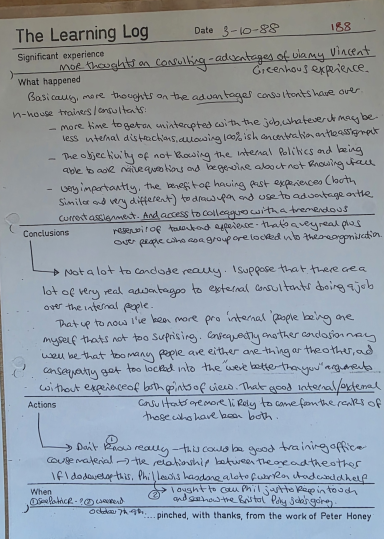 The Learning Log Date 3-10-88 188
Significant experience
more thoughts on consulting - advantages of via my Vincent
Greenhous experience.
What happened
Basically, more thoughts on the advantages consultants have over
in-house trainers/consultants:
- more time to get on uninterrupted with the job, whatever it may be -
less internal distractions, allowing 100% concentration on the assignment
- The objectivity of not knowing the internal politics and being
able to ask naive questions and be genuine about not knowing it all
- very importantly, the benefit of having past experiences (both
similar and very different) to draw upon and use to advantage on the
current assignment. And access to colleagues with a tremendous
reservoir of talent and experience - that's a very real plus
over people who as a group are locked into the one organisation.
Conclusions
Not a lot to conclude really. I suppose that there are a
lot of very real advantages to external consultants doing a job
over the internal people.
That up to now I've been more pro 'internal' people being one
myself that's not too suprising. Consequently another conclusion may
well be that too many people are either one thing or the other, and
consequently get too locked into the "we're better than you" arguments
without experience of both points of view. That good internal/external
consultants are more likely to come from the ranks of
those who have been both.
Actions
① Don't know really - this could be good training officer
course material → the relationship between the one and the other
If I do develop this, Phil Lewis has done a lot of work on it and could help
② I ought to call Phil just to keep in touch
and see how the Bristol Poly job's going.
When
① See Patrick - ? ② weekend
October 7th 9th.
....pinched, with thanks, from the work of Peter Honey